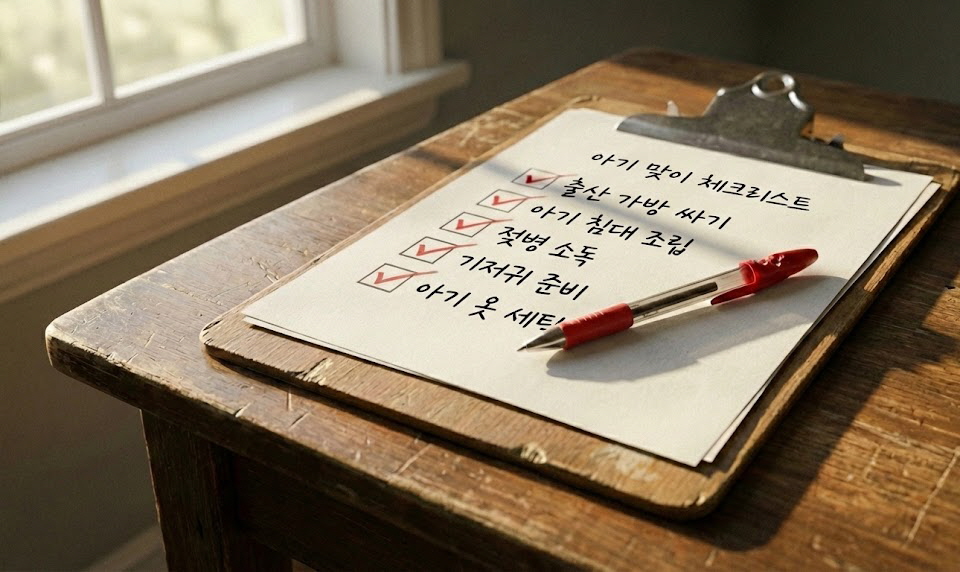 아기 맞이 체크리스트
출산 가방 싸기
아기 침대 조립
젖병 소독
기저귀 준비
아기 옷